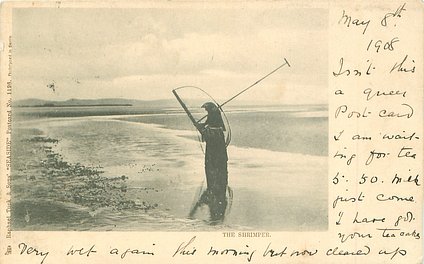 May 8th
1908
Isn't this
a queer
Post card
I am wait-
ing for tea
5.30. Milk
just come
I have got
your teacake
THE SHRIMPER.
Very wet again this morning but now cleared up
Raphael Tuck & Sons' "SEASIDE" Postcard No. 1198.